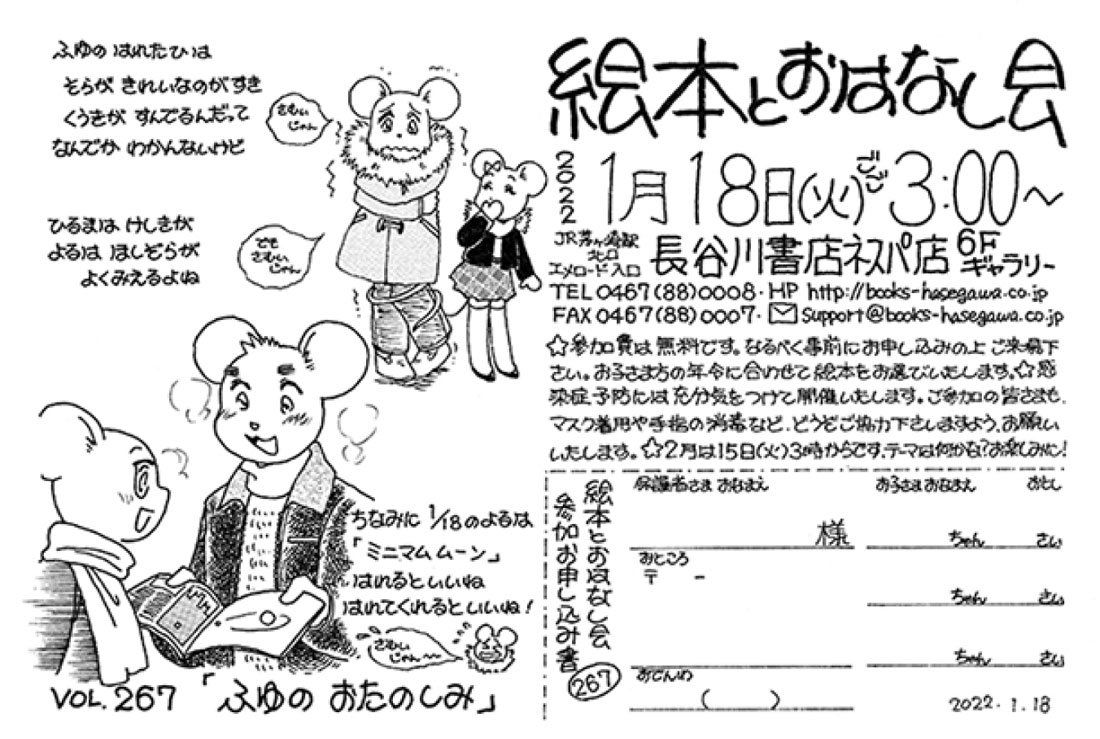 ふゆの はれたひは
そらが きれいなのがすき
くうきが すんでるんだって
なんでか わかんないけど
さむい
じゃん
ひるまは けしきが
よるは ほしぞらが
よくみえるよね
でも
さむい
じゃん
ちなみに 1/18のよるは
「ミニマムムーン」
はれるといいね
はれてくれるといいね!
さむい
じゃん〜
VOL.267 「ふゆの おたのしみ」
絵本とおはなし会
2022 1月18日(火)ごご3:00〜
JR茅ヶ崎駅
北口
エメロード入口
長谷川書店ネスパ店 6F
ギャラリー
TEL 0467(88)0008・HP http://books-hasegawa.co.jp
FAX 0467(88)0007・ support@books-hasegawa.co.jp
☆参加費は無料です。なるべく事前にお申し込みの上ご来場下
さい。お子さま方の年令に合わせて絵本をお選びいたします。☆感
染症予防には充分気をつけて開催いたします。ご参加の皆さまも、
マスク着用や手指の消毒など、どうぞご協力下さいますよう、お願い
いたします。☆2月は15日(火)3時からです。テーマは何かな?お楽しみに!
絵本とおはなし会
参加お申し込み書
267
保護者さま おなまえ お子さまおなまえ おとし
様 ちゃん さい
おところ
〒 -
ちゃん さい
ちゃん さい
おでんわ
( )
2022.1.18